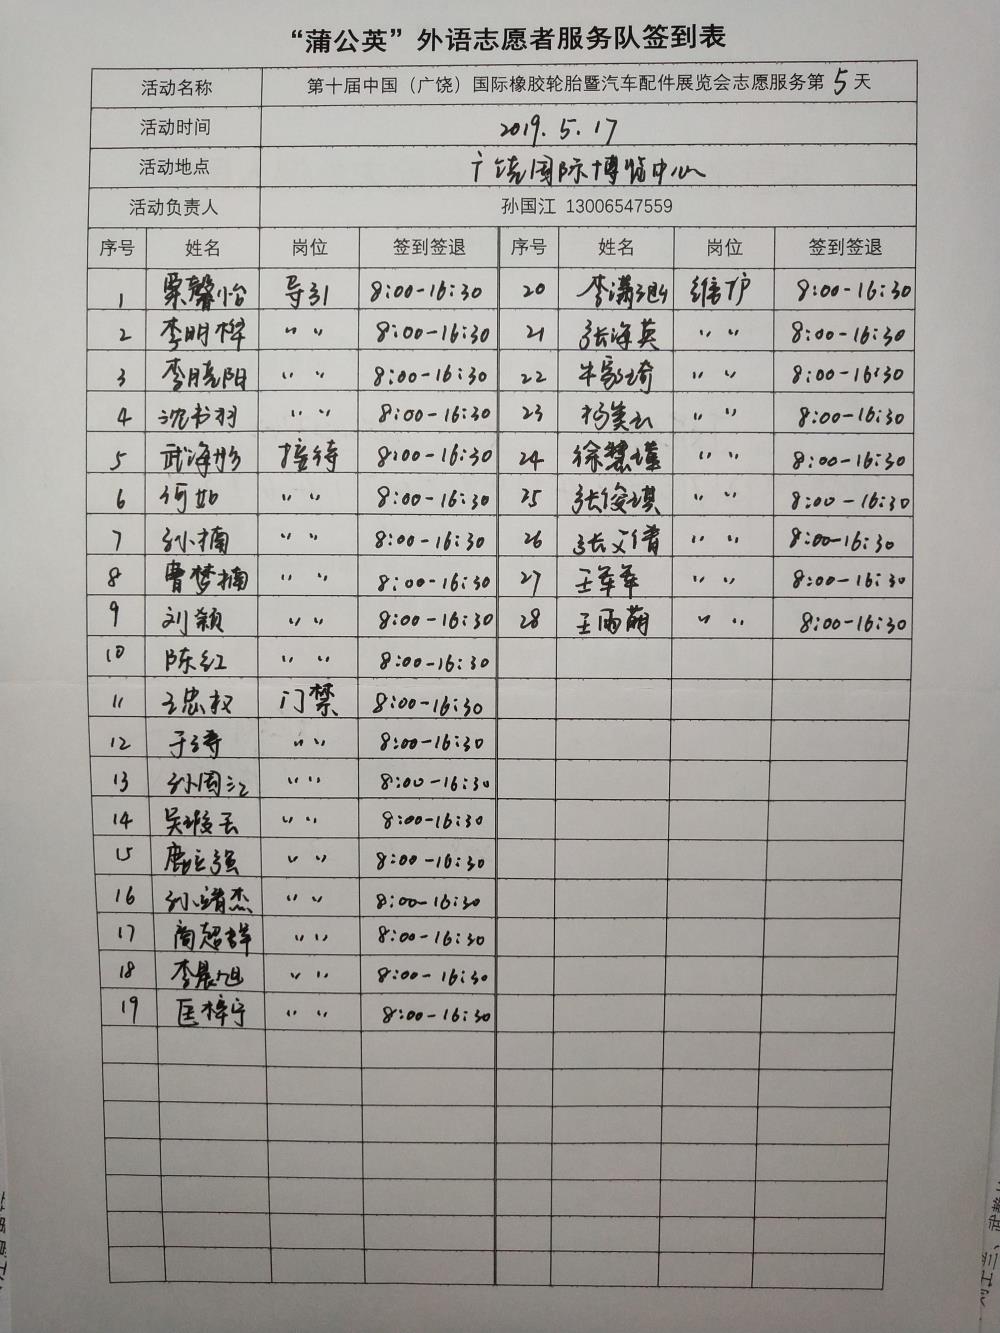 “蒲公英”外语志愿者服务队签到表
活动名称 第十届中国（广饶）国际橡胶轮胎暨汽车配件展览会志愿服务第 5 天
活动时间 2019.5.17
活动地点 广饶国际博览中心
活动负责人 孙国江 13006547559
序号 姓名 岗位 签到签退 序号 姓名 岗位 签到签退
1 栗馨怡 导引 8:00-16:30 20 李潇 维护 8:00-16:30
2 李明桦 〃 〃 8:00-16:30 21 张海英 〃 〃 8:00-16:30
3 李晓阳 〃 〃 8:00-16:30 22 牛家琦 〃 〃 8:00-16:30
4 沈书羽 〃 〃 8:00-16:30 23 杨美 〃 〃 8:00-16:30
5 武海彤 接待 8:00-16:30 24 徐慧瑾 〃 〃 8:00-16:30
6 何如 〃 〃 8:00-16:30 25 张俊琪 〃 〃 8:00-16:30
7 孙楠 〃 〃 8:00-16:30 26 张文倩 〃 〃 8:00-16:30
8 曹梦楠 〃 〃 8:00-16:30 27 王苹苹 〃 〃 8:00-16:30
9 刘颖 〃 〃 8:00-16:30 28 王雨萌 〃 〃 8:00-16:30
10 陈红 〃 〃 8:00-16:30
11 王忠权 门禁 8:00-16:30
12 于涛 〃 〃 8:00-16:30
13 孙国江 〃 〃 8:00-16:30
14 吴 〃 〃 8:00-16:30
15 鹿立强 〃 〃 8:00-16:30
16 孙靖杰 〃 〃 8:00-16:30
17 商超群 〃 〃 8:00-16:30
18 李晨旭 〃 〃 8:00-16:30
19 匡梓宁 〃 〃 8:00-16:30